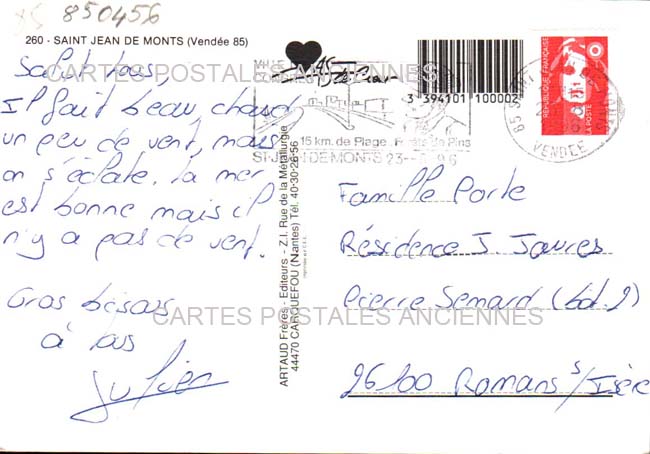 85 850456
260 - SAINT JEAN DE MONTS (Vendée 85)
Salut tous,
Il fait beau, chaud
un peu de vent, mais
on s'éclate. la mer
est bonne mais il
n'y a pas de vent.
Gros bisous
à tous
Julien
ARTAUD Frères - Editeurs - Z.I. Rue de la Métallurgie
44470 CARQUEFOU (Nantes) Tél. 40-30-26-56
3 394101 100002
15 km. de Plage Forêts de Pins
ST-JEAN DE MONTS 23
REPUBLIQUE FRANÇAISE
LA POSTE
VENDEE
Famille Porte
Résidence J. Jaures
Pierre Semard (bat 2)
26100 Romans s/Isère
CARTES POSTALES ANCIENNES
CARTES POSTALES ANCIENNES